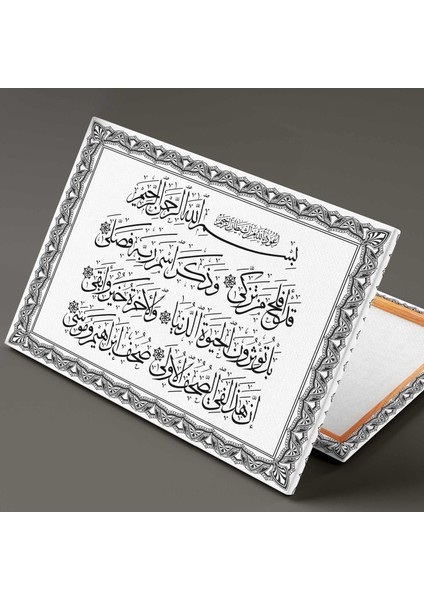 اعوذ بالله من الشيطان الرجيم
بِسْمِ اللَّهِ الرَّحْمَنِ الرَّحِيمِ
قَدْ اَفْلَحَ مَنْ تَزَكَّى وَذَكَرَ اسْمَ رَبِّهِ فَصَلَّى
بَلْ تُؤْثِرُونَ الْحَيٰوةَ الدُّنْيَا وَالْاٰخِرَةُ خَيْرٌ وَاَبْقَى
اِنَّ هٰذَا لَفِي الصُّحُفِ الْاُولَى صُحُفِ اِبْرٰهِيمَ وَمُوسَى